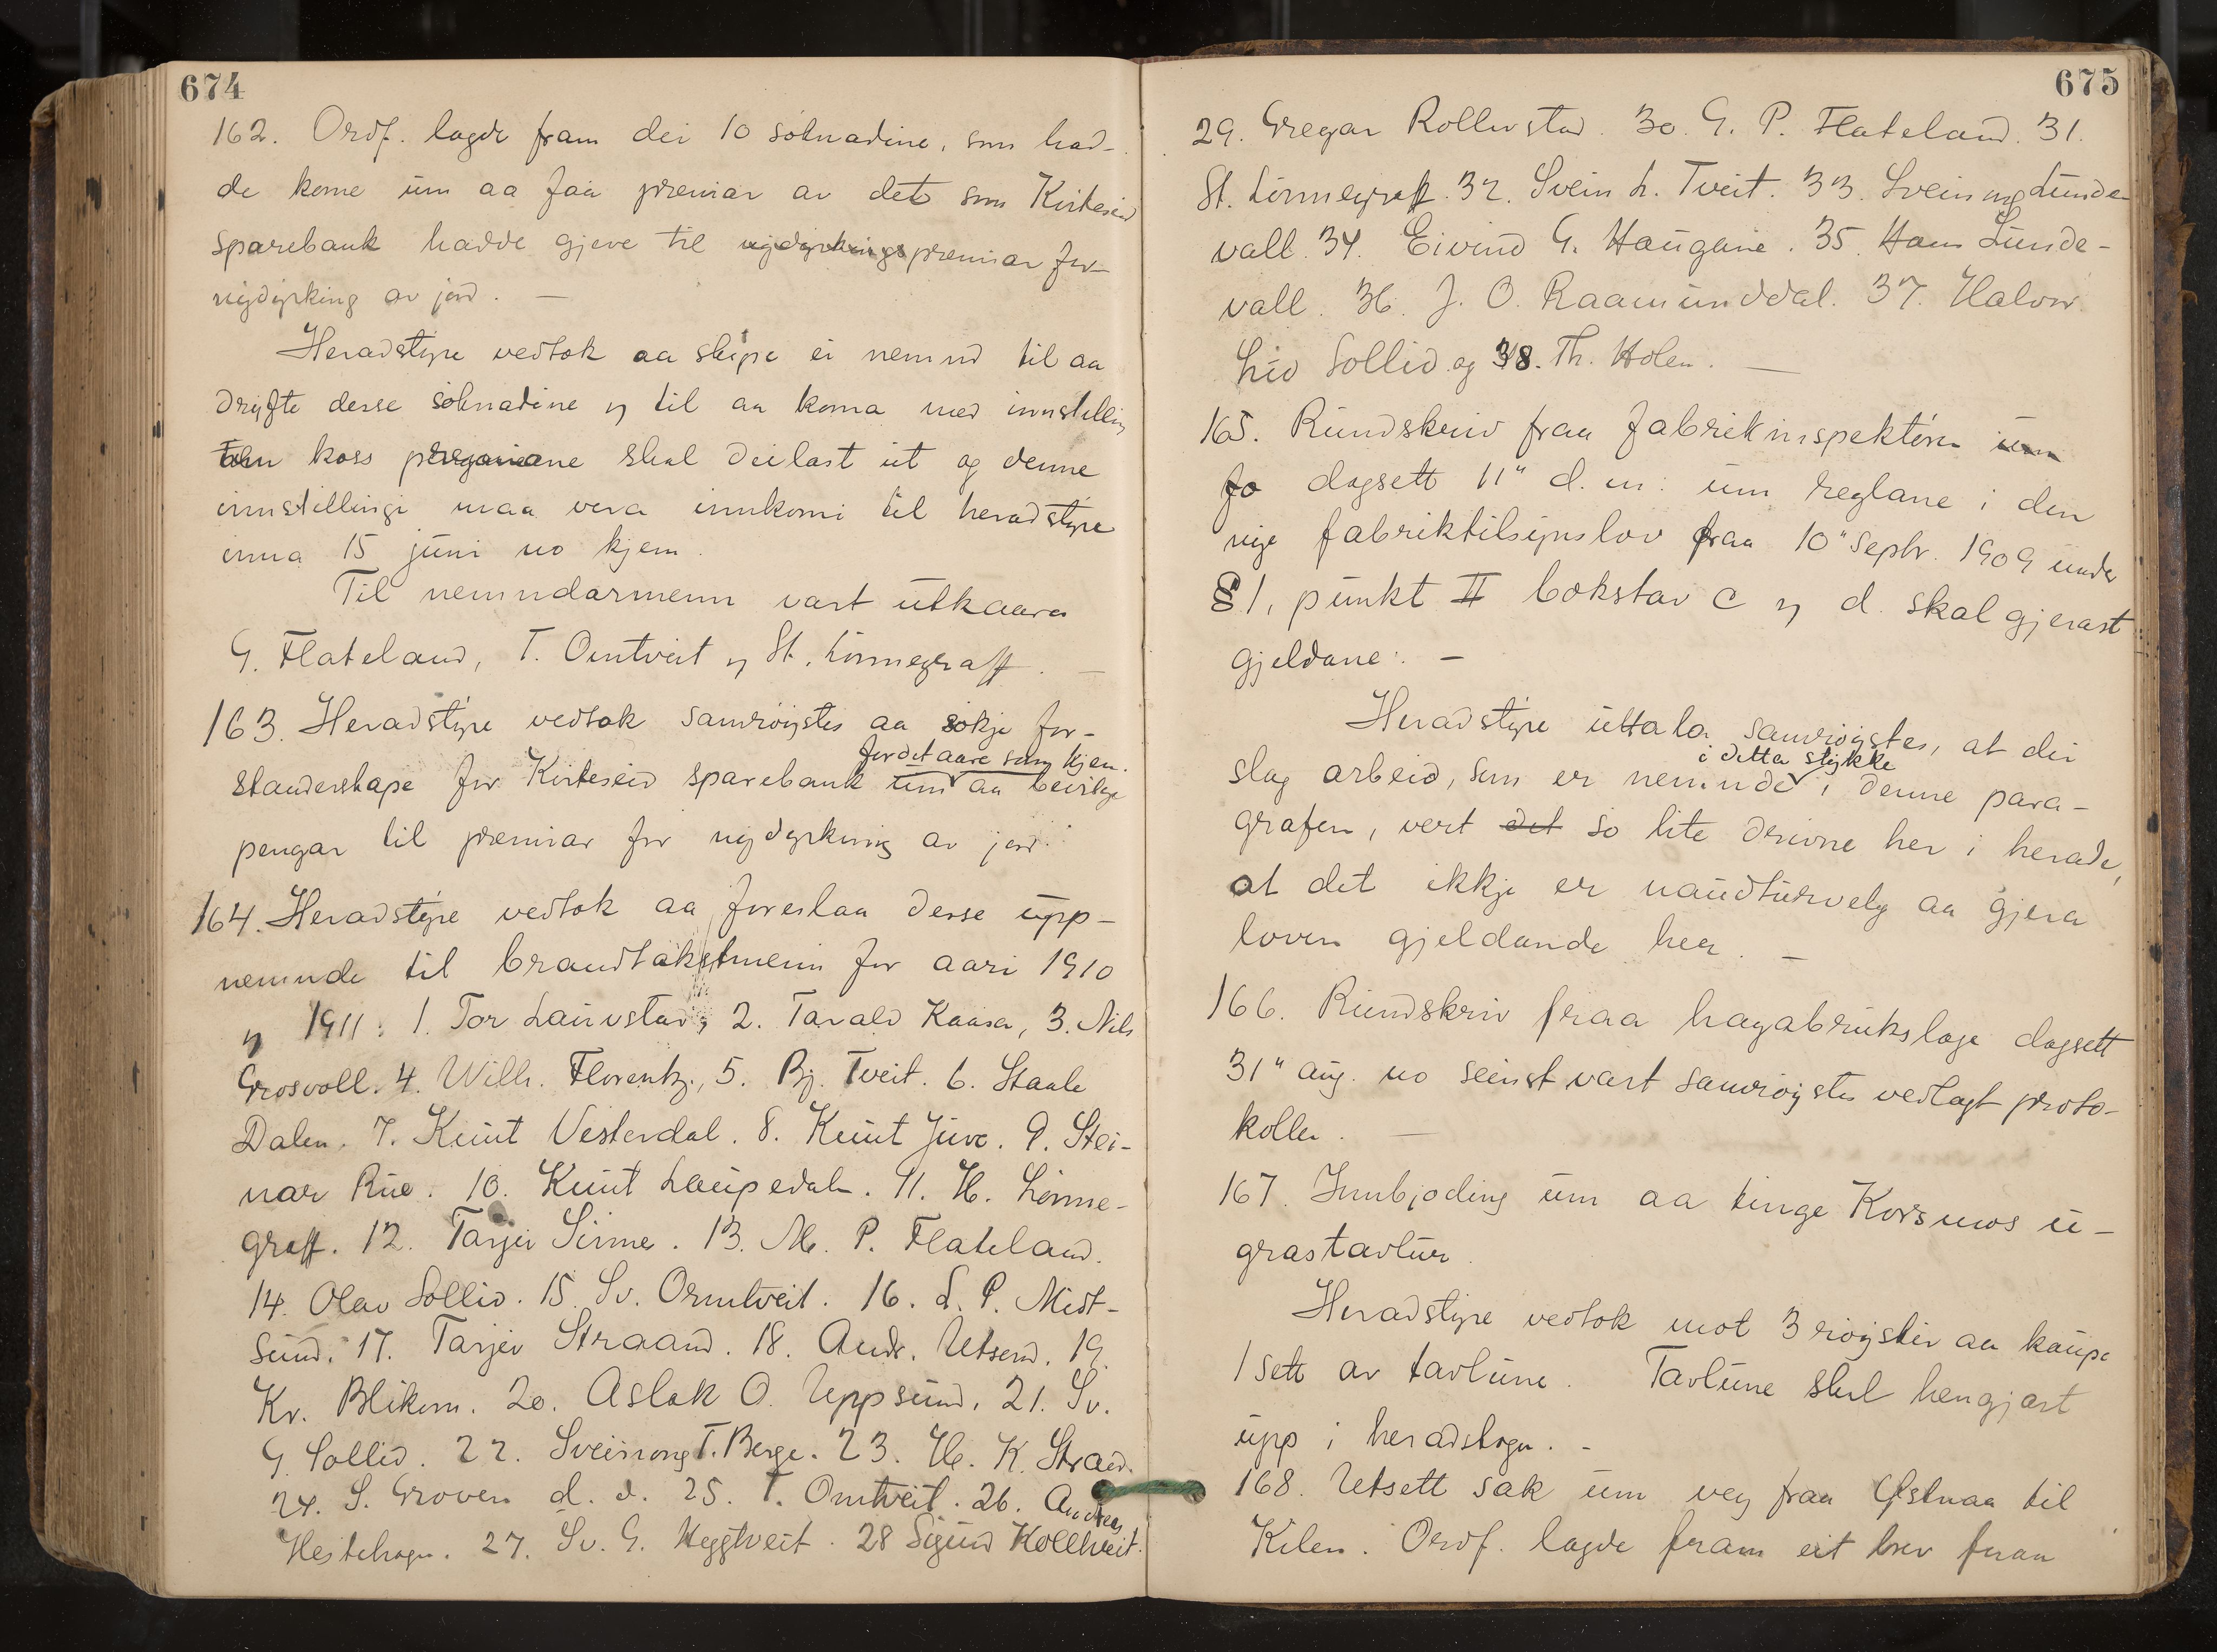 674
162. Ordf. lagde fram dei 10 söknadine, som had-
de kome um aa faa premiar av det som Kviteseid
sparebank hadde gjeve til nydyrkingspremiar for
nydyrking av jord. —
Heradstyre vedtok aa skipe ei nemnd til aa
drÿfte desse söknadine og til aa koma med innstelling
um koss premiane skal deilast ut og denne
innstillingi maa vera innkomi til heradstyre
inna 15 juni no kjem.
Til nemndarmenn vart utkaara
G. Flateland, T. Omtveit og St. Lönnegraff. —
163. Heradstyre vedtok samröystes aa sökje for-
for det aare som kjem.
standerskape for Kviteseid sparebank um aa beivilge
pengar til premiar for nydyrking av jord.
164. Heradstyre vedtok aa foreslaa desse upp-
nemnde til brandtakstmenn for aari 1910
og 1911: 1. Tor Lauvstad, 2. Tarald Kaasa, 3. Nils
Grosvoll. 4. Wilh. Florentz., 5. Bj. Tveit. 6. Staale
Dalen. 7. Knut Vesterdal. 8. Knut Juve. 9. Stei-
nar Rue. 10. Knut Laupedal. 11. H. Lönne-
graff. 12. Tarjei Sinnes. 13. M. P. Flateland.
14. Olav Sollid. 15. Sv. Ormtveit. 16. S. P. Midt-
sund. 17. Tarjei Straand. 18. Andr. Utsund. 19.
Kr. Blikom. 20. Aslak O. Uppsund. 21. Sv.
G. Sollid. 22. Sveinung T. Berge. 23. H. K. Strand.
24. S. Groven d. e. 25. T. Omtveit. 26. Andreas
Hestehagen. 27. Sv. G. Heggtveit. 28 Sigurd Kolltveit.
675
29. Gregar Rollevstad. 30. G. P. Flateland. 31.
St. Lönnegraff. 32. Svein L. Tveit. 33. Sveinung Lunde-
vall. 34. Eivind G. Haugane. 35. Hans Lunde-
vall. 36. J. O. Raamunddal. 37. Halvor
Lid Sollid og 38. Th. Holen. —
165. Rundskriv fraa fabrikinspektören um
fo dagsett 11" d. m: um reglane i den
nye fabriktilsynslov fraa 10" septr. 1909 under
§ 1, punkt II bokstav c og d. skal gjerast
gjeldane. —
Heradstyre uttala samröystes, at dei
i detta stykke
slag arbeid, som er nemnde i denne para-
grafen, vert det so lite drivne her i herade,
at det ikkje er naudturvelg aa gjera
loven gjeldande her. —
166. Rundskriv fraa hagabrukslage dagsett
31" aug. no seinst vart samröystes vedlagt proto-
kollen. —
167. Innbjoding um aa tinge Korsmos u-
grastavlur.
Heradstyre vedtok mot 3 röyster aa kaupe
1 sett av tavlune. Tavlune skal hengjast
upp i heradstogu. -
168. Utsett sak um veg fraa Østnaa til
Kilen. Ordf. lagde fram eit brev fraa